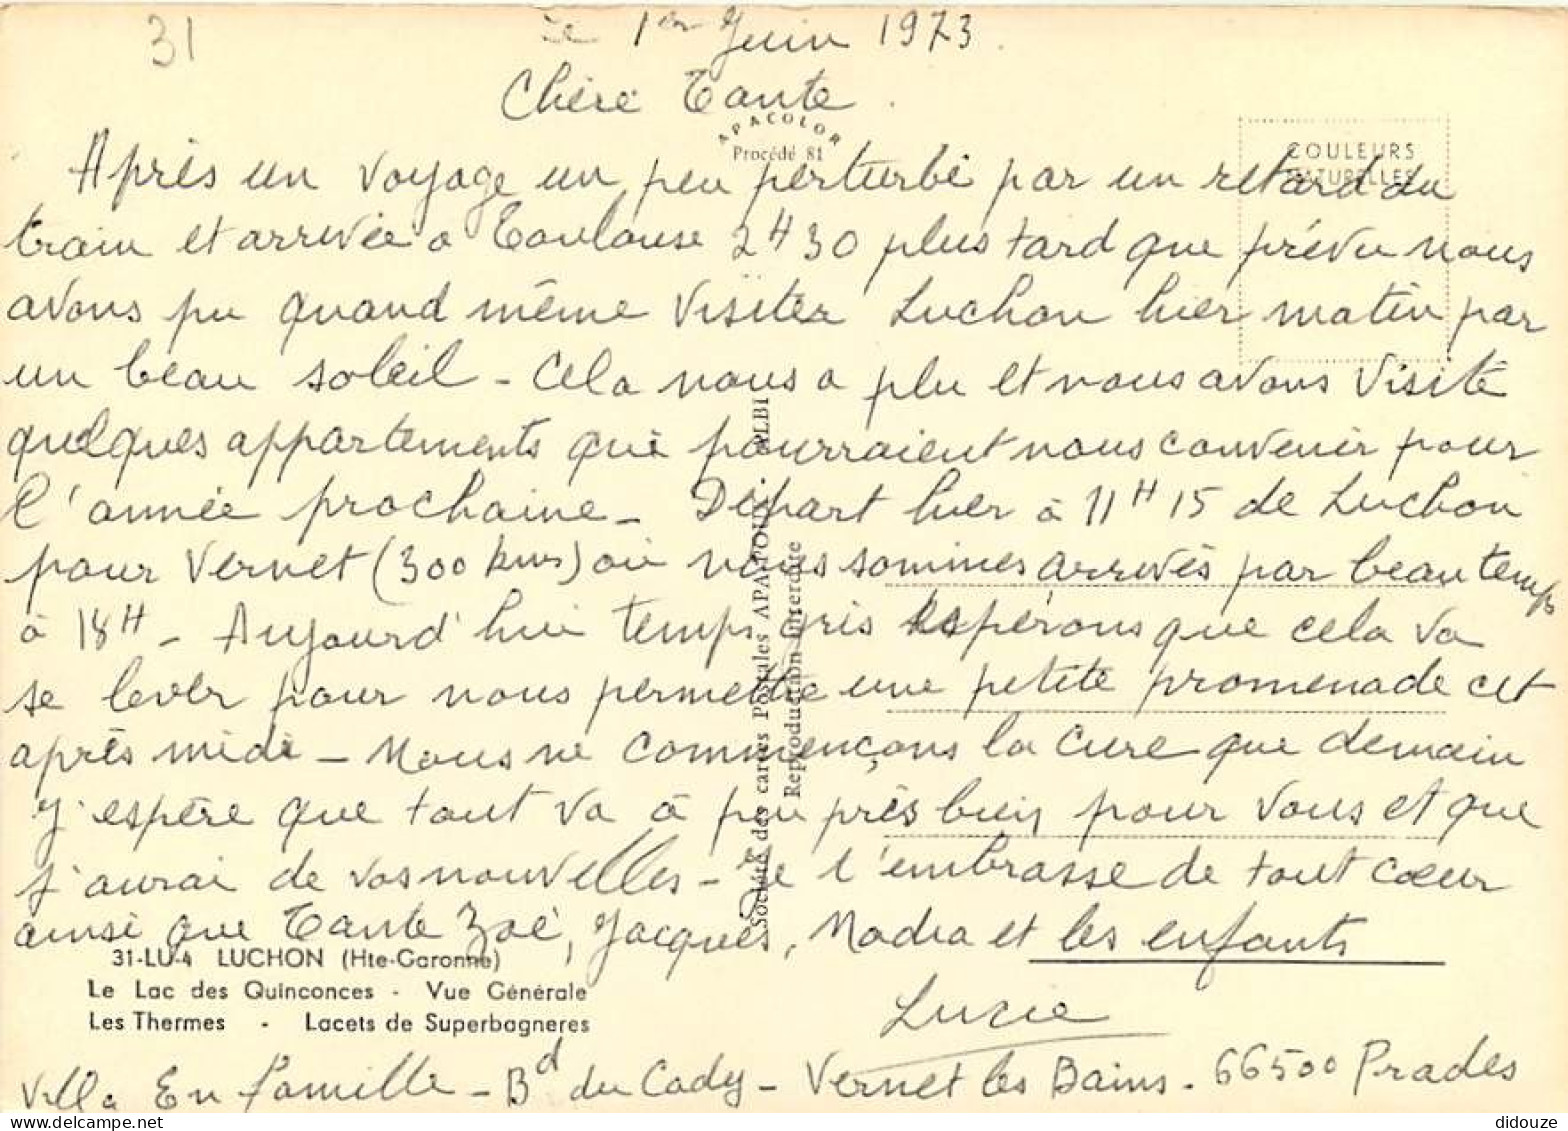 31
Le 1er Juin 1973.
Chère Tante.
APACOLOR
Procédé 81
COULEURS
NATURELLES
Après un voyage un peu perturbé par un retard du
train et arrivée à Toulouse 2H30 plus tard que prévu nous
avons pu quand même visiter Luchon hier matin par
un beau soleil - Cela nous a plu et nous avons visité
quelques appartements qui pourraient nous convenir pour
l'année prochaine - Départ hier à 11H15 de Luchon
pour Vernet (300 kms) où nous sommes arrivés par beau temps
à 18H - Aujourd'hui temps gris espérons que cela va
se lever pour nous permettre une petite promenade cet
après midi - Nous ne commençons la cure que demain
J'espère que tout va à peu près bien pour vous et que
j'aurai de vos nouvelles - Je t'embrasse de tout cœur
ainsi que Tante Zoé, Jacques, Nadia et les enfants
Lucie
Société des cartes Postales APA-POUX - ALBI
Reproduction interdite
31-LU-4 LUCHON (Hte-Garonne)
Le Lac des Quinconces - Vue Générale
Les Thermes - Lacets de Superbagneres
Villa En famille - Bd du Cady - Vernet les Bains - 66500 Prades
didouze